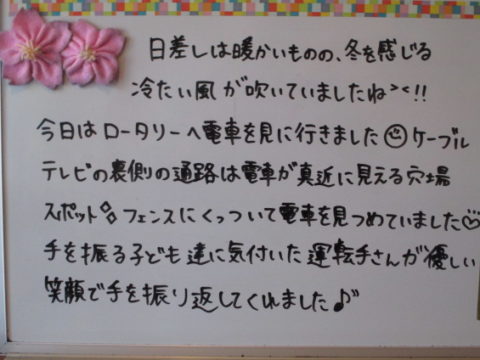 日差しは暖かいものの、冬を感じる
冷たい風が吹いていましたね><!!
今日はロータリーへ電車を見に行きました☺ケーブル
テレビの裏側の通路は電車が真近に見える穴場
スポット フェンスにくっついて電車を見つめていました☺
手を振る子ども達に気付いた運転手さんが優しい
笑顔で手を振り返してくれました♪